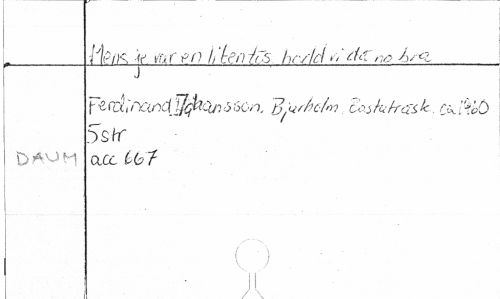 Mens je var en liten tös, hadd vi dä no bra
Ferdinand Johansson, Bjurholm, Bastuträsk, ca 1960
5 str
DAUM acc 667